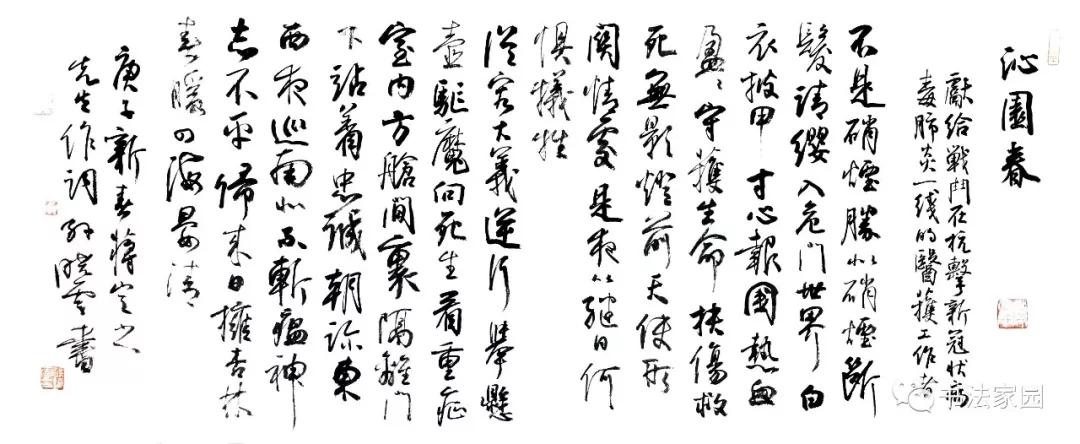 沁園春
獻給戰鬥在抗擊新冠狀病
毒肺炎一线的醫護工作者
不是硝煙勝似硝煙斷
髮請纓入危門世界白
衣披甲寸心報國熱血
盈盈守護生命扶傷救
死無影燈前天使形
關情處是夜以继日何
懼犧牲
從容大義逆行舉懸
壺驅魔向死生看重症
室内方艙間裏隔離門
下站着忠誠朝診東
西夜巡南北不斬瘟神
志不平歸来日擁杏林
春暖四海晏清
庚子新春蔣定之
先生作词 晓雲書
书法家园